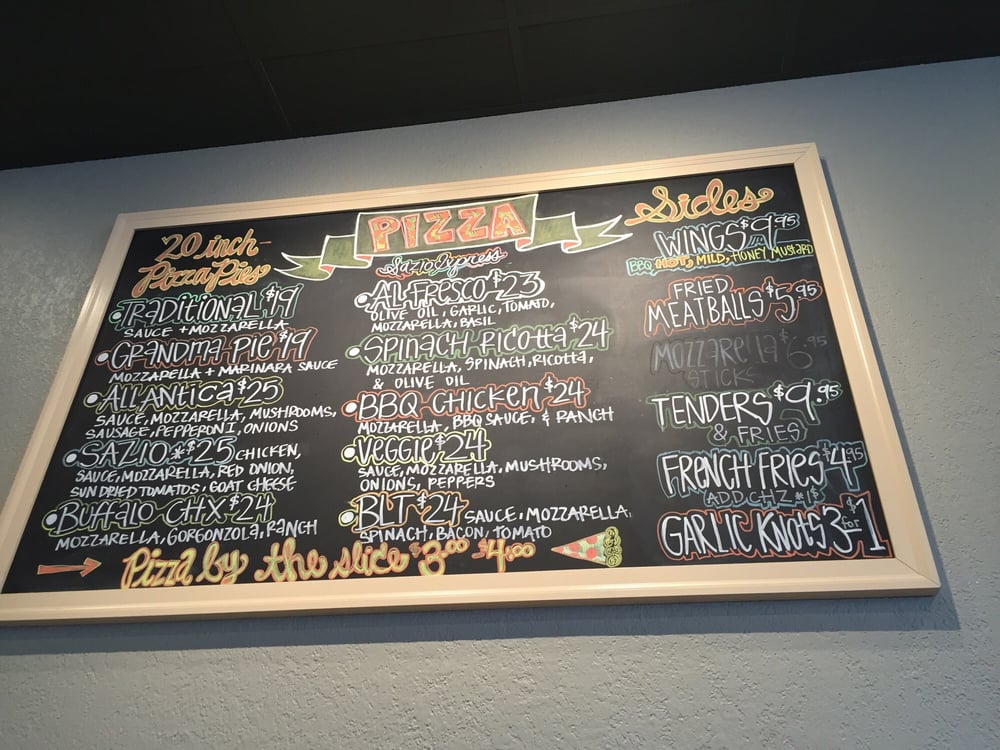 PIZZA
Sazio Express
20 inch
Pizza Pies
TRADITIONAL $19
SAUCE + MOZZARELLA
GRANDMA PIE $19
MOZZARELLA + MARINARA SAUCE
ALLANTICA $25
SAUCE, MOZZARELLA, MUSHROOMS,
SAUSAGE, PEPPERONI, ONIONS
SAZIO * $25 CHICKEN,
SAUCE, MOZZARELLA, RED ONION,
SUN DRIED TOMATOS, GOAT CHEESE
BUFFALO CHX $24
MOZZARELLA, GORGONZOLA, RANCH
ALL FRESCO $23
OLIVE OIL, GARLIC, TOMATO,
MOZZARELLA, BASIL
SPINACH RICOTTA $24
MOZZARELLA, SPINACH, RICOTTA,
& OLIVE OIL
BBQ CHICKEN $24
MOZZARELLA, BBQ SAUCE, & RANCH
VEGGIE $24
SAUCE, MOZZARELLA, MUSHROOMS,
ONIONS, PEPPERS
BLT $24 SAUCE, MOZZARELLA,
SPINACH, BACON, TOMATO
Pizza by the slice $3.00 $4.00
Sides
WINGS $9.95
BBQ HOT, MILD, HONEY MUSTARD
FRIED
MEATBALLS $5.95
MOZZARELLA $6.95
STICKS
TENDERS $9.95
& FRIES
FRENCH FRIES $4.95
ADD CHZ * 1$
GARLIC KNOTS 3 for $1